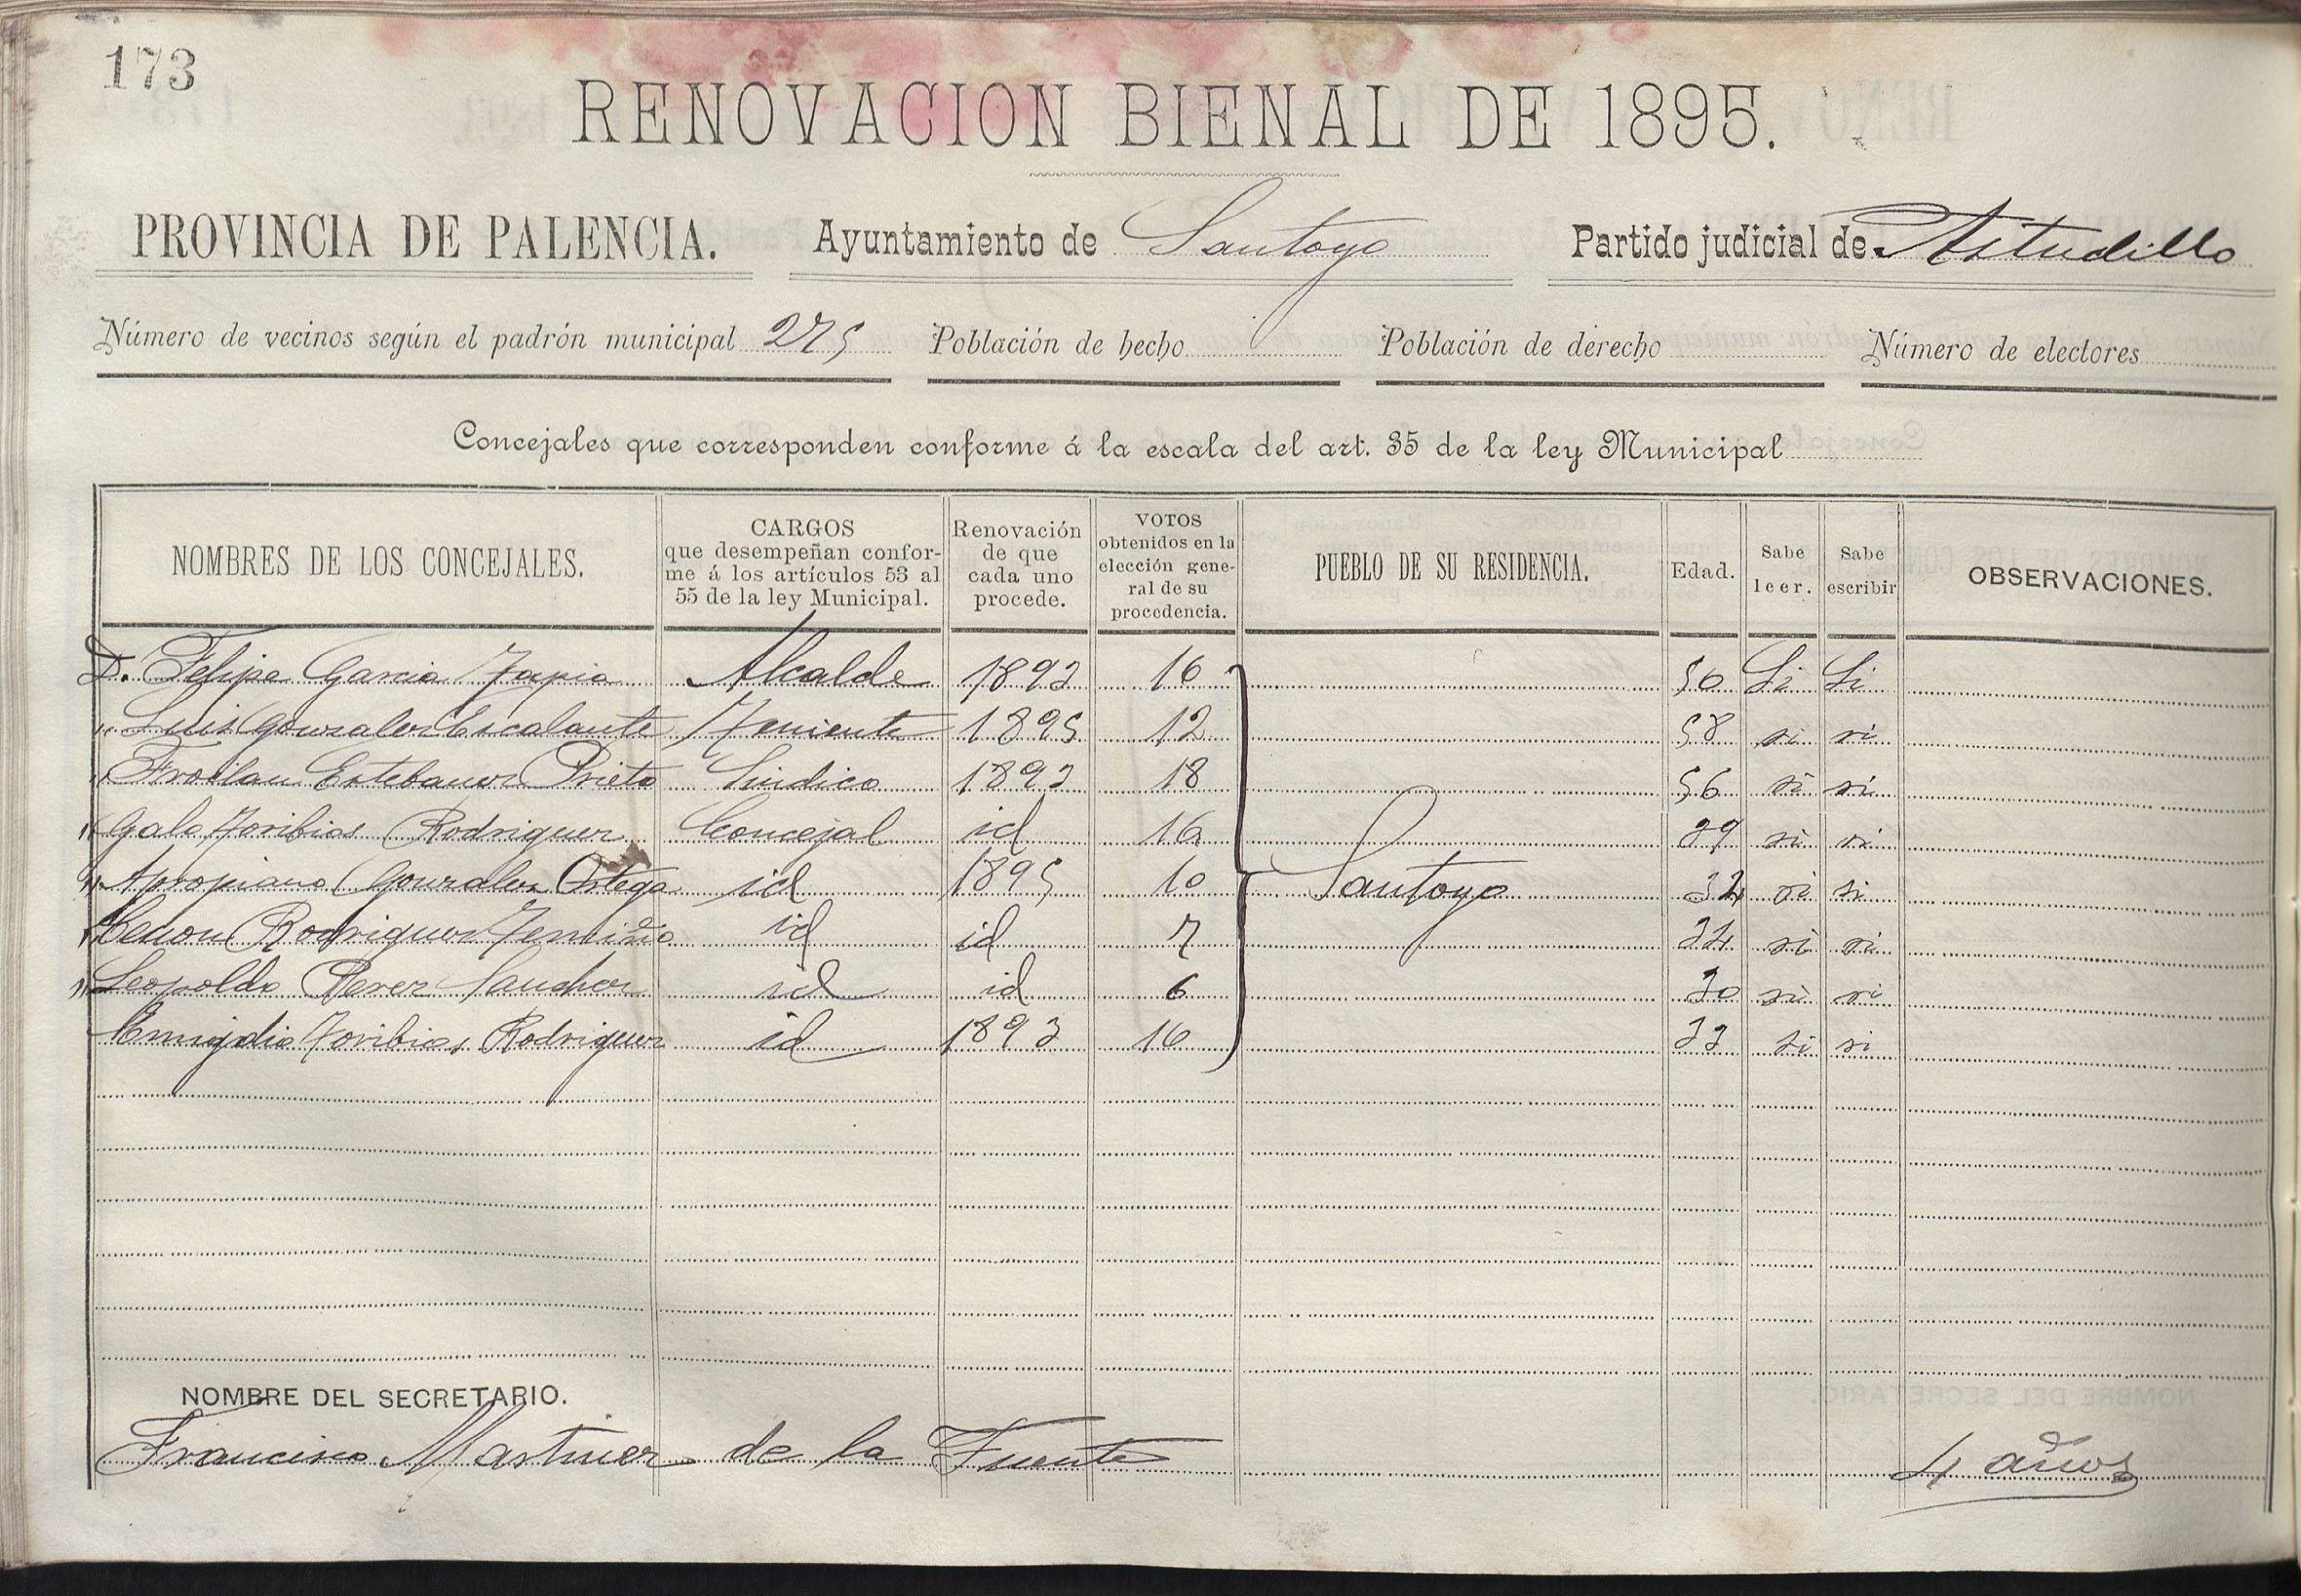 173
RENOVACION BIENAL DE 1895.
PROVINCIA DE PALENCIA. Ayuntamiento de Santoyo Partido judicial de Astudillo
Número de vecinos según el padrón municipal 275 Población de hecho Población de derecho Número de electores
Concejales que corresponden conforme á la escala del art. 35 de la ley Municipal
NOMBRES DE LOS CONCEJALES. CARGOS que desempeñan conforme á los artículos 53 al 55 de la ley Municipal. Renovación de que cada uno procede. VOTOS obtenidos en la elección general de su procedencia. PUEBLO DE SU RESIDENCIA. Edad. Sabe leer. Sabe escribir OBSERVACIONES.
D. Felipe Garcia Tapia Alcalde 1893 16 50 Si Si
" Luis Gonzalez Escalante Teniente 1895 12 58 si si
" Froilan Estebanez Prieto Sindico 1893 18 56 si si
" Galo Toribios Rodriguez Concejal id 16 39 si si
" Apropiano Gonzalez Ortega id 1895 10 Santoyo 34 si si
" Cenon Rodriguez Temiño id id 7 34 si si
" Leopoldo Perez Sanchez id id 6 30 si si
Emigdio Toribios Rodriguez id 1893 16 33 si si
NOMBRE DEL SECRETARIO.
Francisco Martinez de la Fuente 4 años